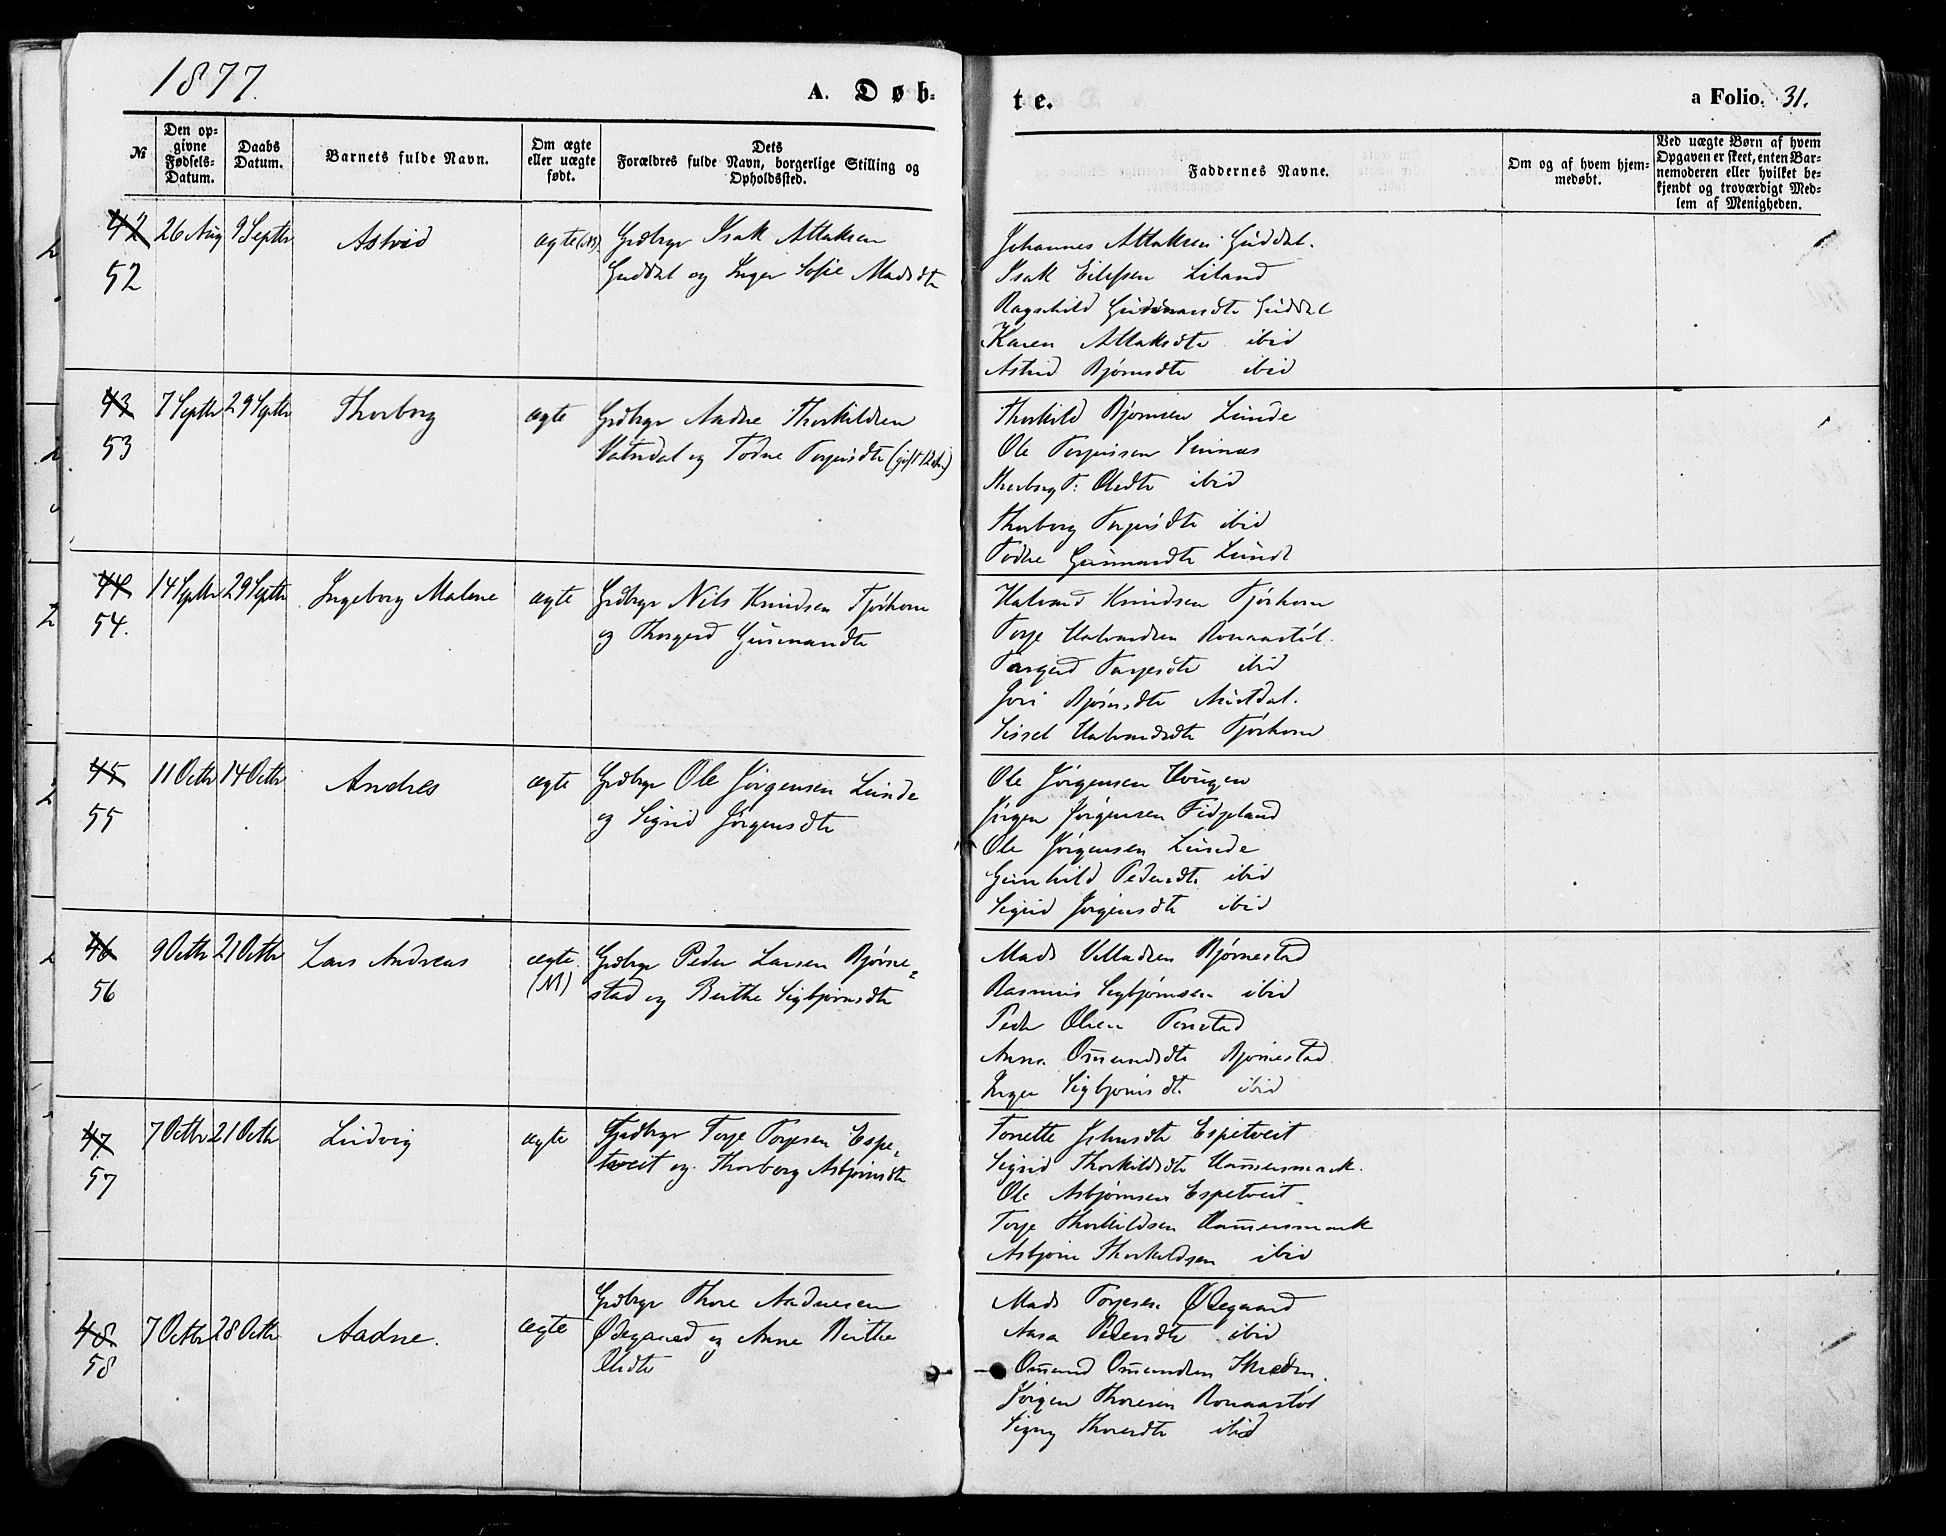 1877.
A. Døb-
te.
a Folio. 31.
№
Den op-
givne
Fødsels-
Datum.
Daabs
Datum.
Barnets fulde Navn.
Om ægte
eller uægte
født.
Dets
Forældres fulde Navn, borgerlige Stilling og
Opholdssted.
Faddernes Navne.
Om og af hvem hjem-
medøbt.
Ved uægte Børn af hvem
Opgaven er skeet, enten Bar-
nemoderen eller hvilket be-
kjendt og troværdigt Med-
lem af Menigheden.
42 26 Aug 9 Septbr Astrid ægte (N) Grdbrgr Isak Atlaksen
52 Guddal og Inger Sofie Madsdtr
Johannes Atlaksen Guddal.
Isak Eilefsen Liland
Ragnhild Gudmundsdtr Guddal
Karen Atlaksdtr ibid
Astrid Bjørnsdtr ibid
43 7 Septbr 29 Septbr Thorborg ægte Grdbrgr Aadne Thorkildsen
53 og Todne Torjusdtr (gift 12 )
Thorkild Bjørnsen Lunde
Ole Torjussen Sinnæs
Thorborg T: Olsdtr ibid
Thorborg Torjusdtr ibid
Todne Gunmundtr Lunde
44 14 Septbr 29 Septbr Ingeborg Malene ægte Grdbrgr Nils Knudsen Tjørhom
54. og Thorgerd Gunmundtr
Halvard Knudsen Tjørhom
Torje Halvardsen Ronaastøl.
Torgerd Torjesdtr ibid
Jori Bjørnsdtr
Sissel Halvardsdtr Tjørhom
45 11 Octbr 14 Octbr Andres ægte Grdbrgr Ole Jørgensen Lunde
55 og Sigrid Jørgensdtr
Ole Jørgensen Haugen
Jørgen Jørgensen Fidjeland
Ole Jørgensen Lunde
Gunhild Pedersdtr ibid
Sigrid Jørgensdtr ibid
46 9 Octbr 21 Octbr Lars Andreas ægte Grdbrgr Peder Larsen Bjørne-
56 (N) stad og Berthe Sigbjørnsdtr
Mads Villadsen Bjørnestad
Rasmus Sigbjørnsen ibid
Peder Olsen Tonstad
Anna Omundsdtr Bjørnestad
Inger Sigbjørnsdtr ibid
47 7 Octbr 21 Octbr Ludvig ægte Grdbrgr Torje Torjesen Espe-
57 tveit og Thorborg Asbjørnsdtr
Tonette Johnsdtr Espetveit
Sigrid Thorkildsdtr Hammersmark.
Ole Asbjørnsen Espetveit
Torje Thorkildsen Hammersmark
Asbjørn Thorkildsen ibid
48 7 Octbr 28 Octbr Aadne. ægte Grdbrgr Thore Aadnesen
58 Ødegaard og Anne Berthe
Olsdtr
Mads Torjesen Ødegaard
Aasa Pedersdtr ibid
Omund Omundsen
Jørgen Thoresen Ronaastøl
Signy Thoresdtr ibid